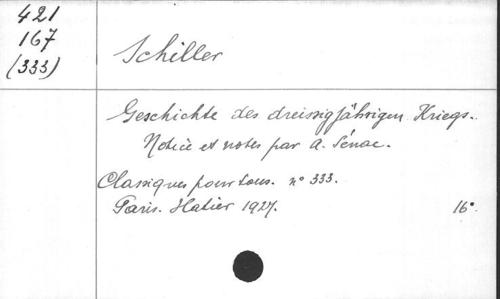 421
167
(333)
Schiller
Geschichte des dreissigjährigen Kriegs.
Notice et notes par A. Sénac.
Classiques pour tous. n° 333.
Paris. Hatier 1927. 16°